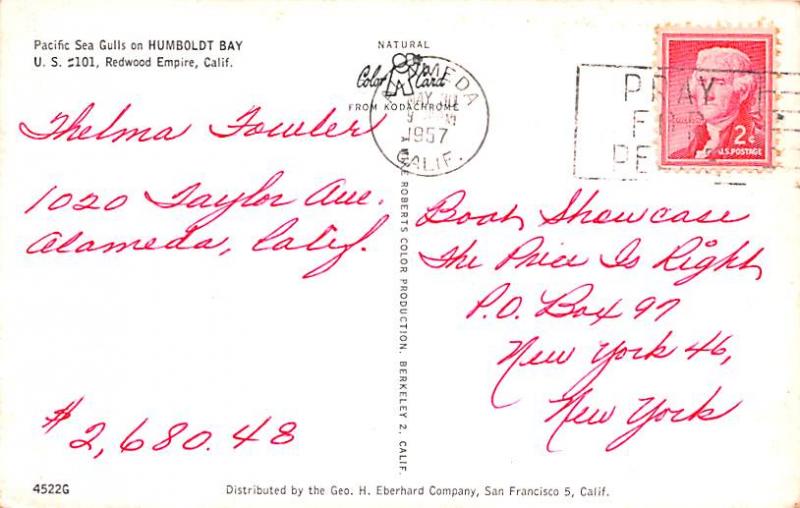 Pacific Sea Gulls on HUMBOLDT BAY
U. S. #101, Redwood Empire, Calif.
NATURAL
Color Card
FROM KODACHROME
1957
CALIF.
PRAY
U.S. POSTAGE
2¢
Thelma Fowler
1020 Taylor Ave.
Alameda, Calif.
$2,680.48
ROBERTS COLOR PRODUCTION. BERKELEY 2, CALIF.
Boat Showcase
The Price Is Right
P.O. Box 97
New York 46,
New York
4522G
Distributed by the Geo. H. Eberhard Company, San Francisco 5, Calif.